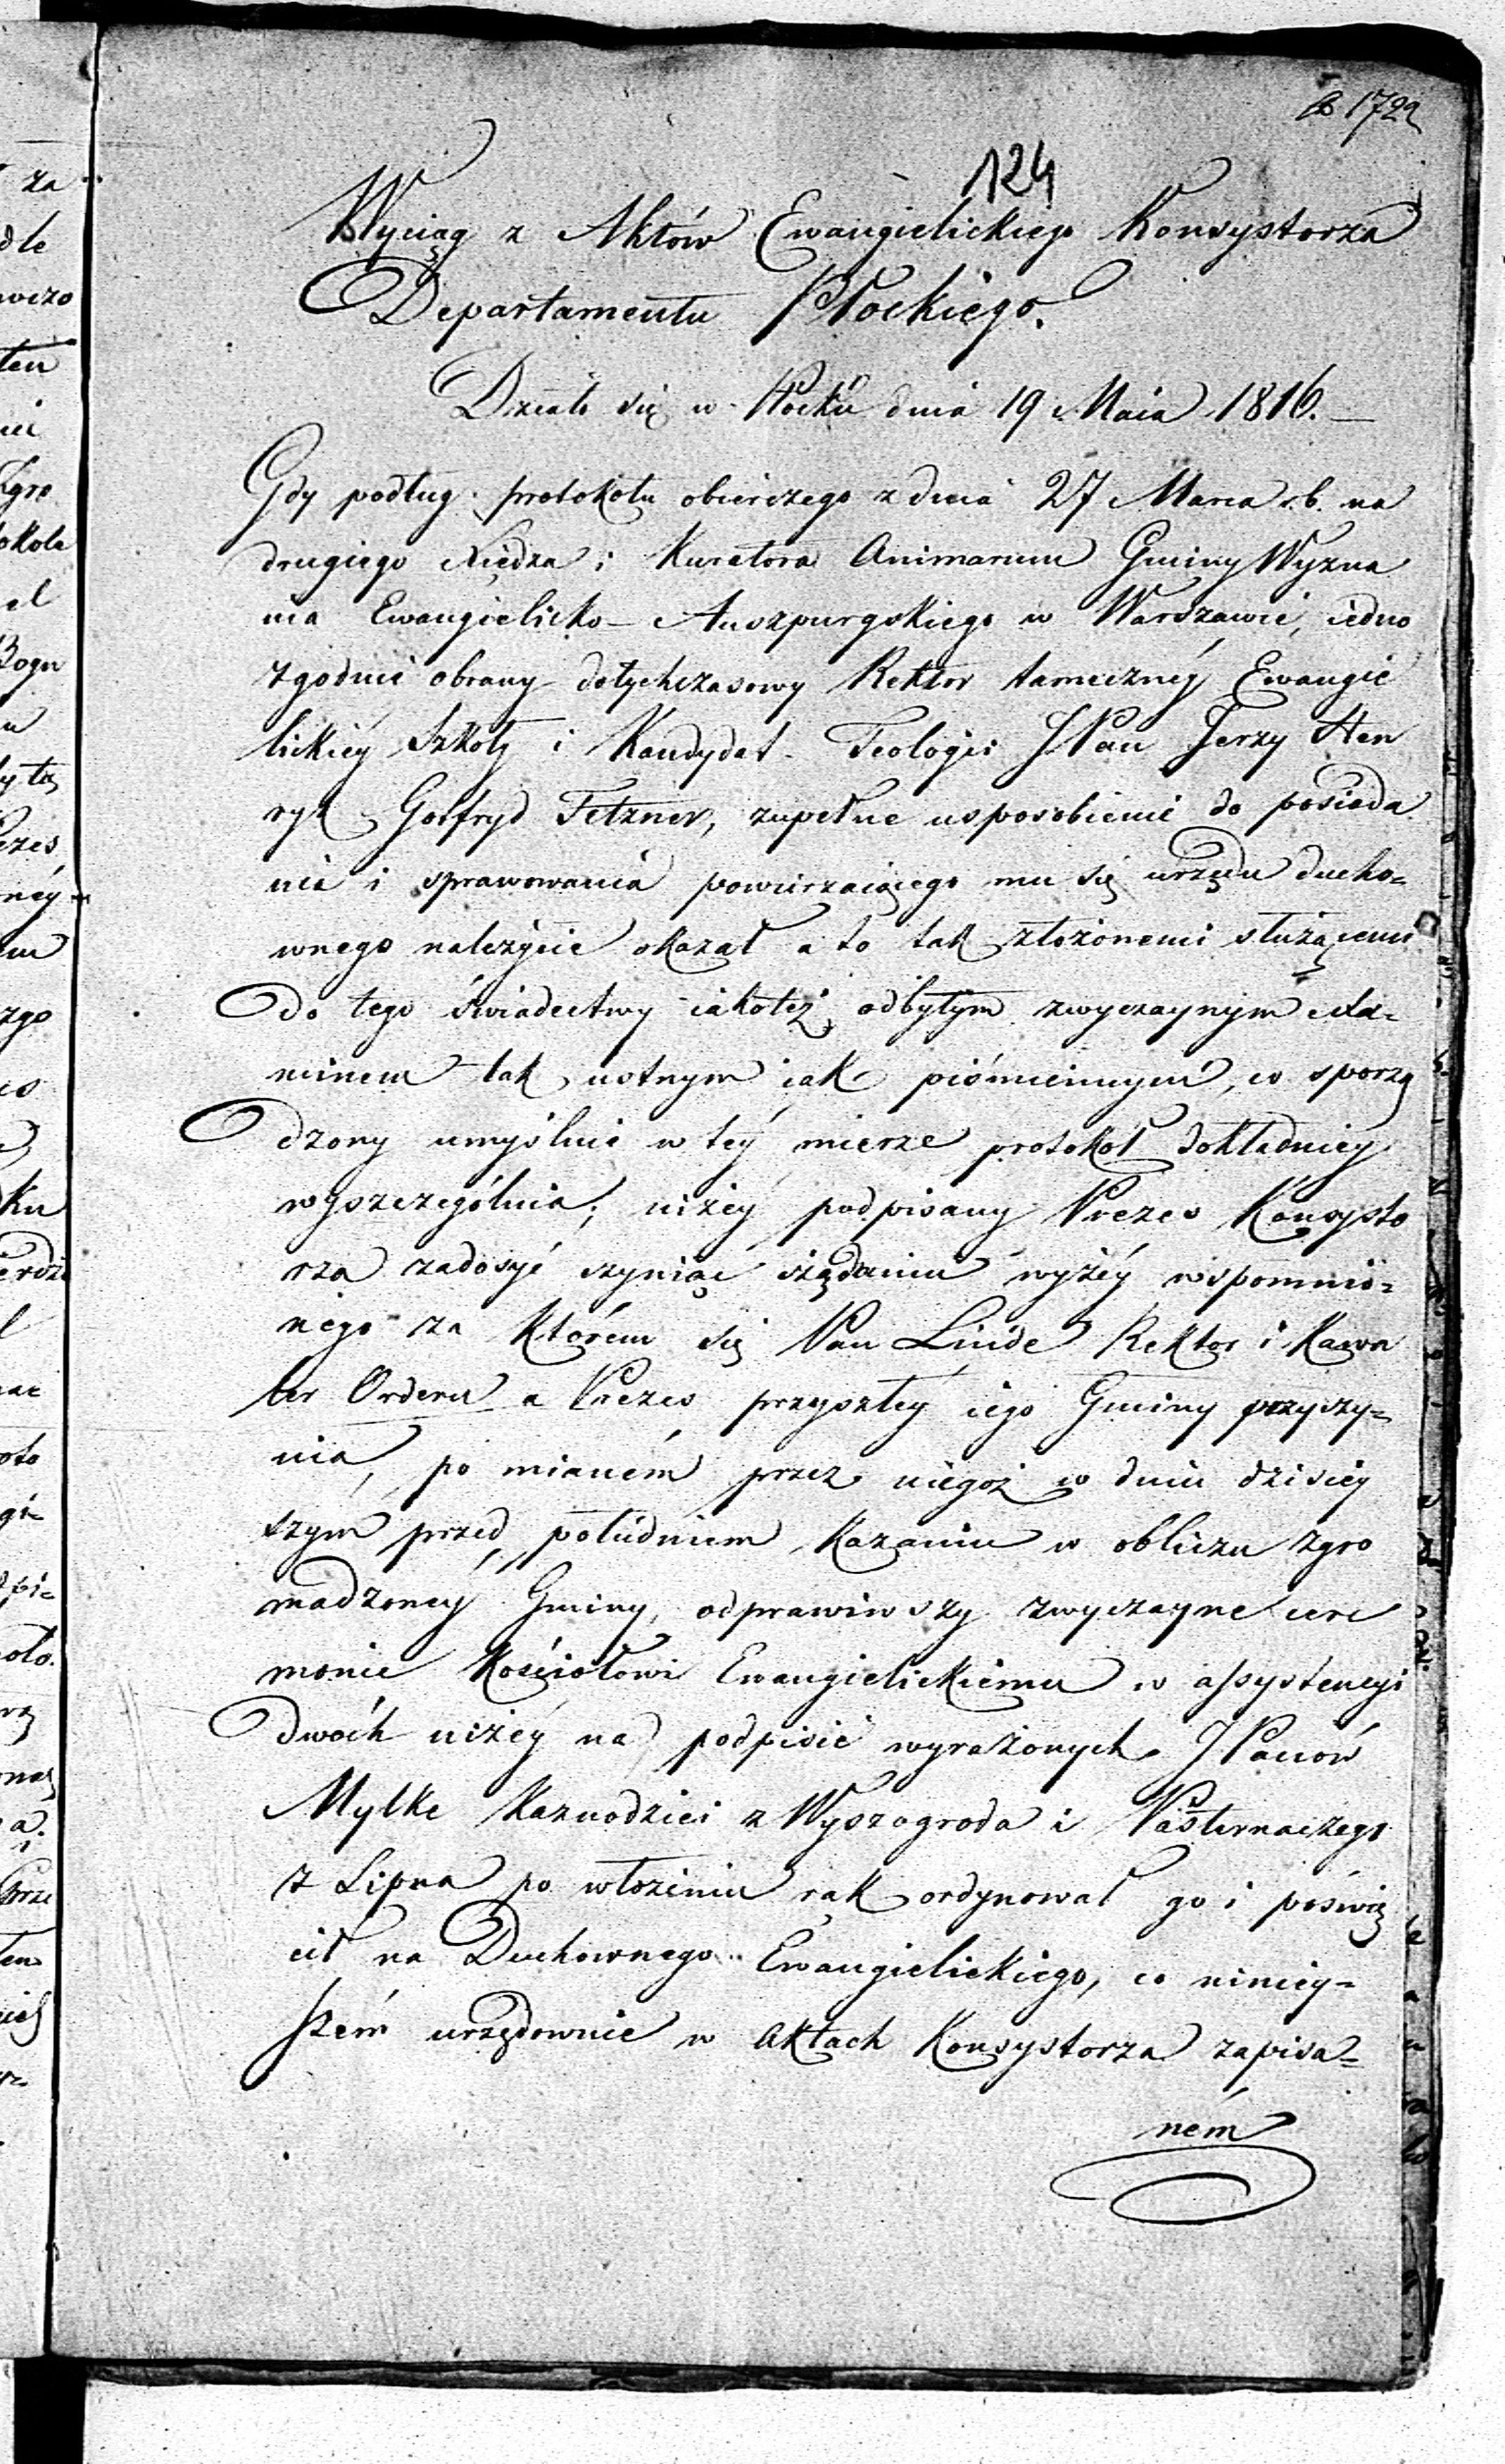 1729
124
Wyciąg z Aktów Ewangielickiego Konsystorza
Departamentu Płockiego.
Działo się w Płocku dnia 19 Maia 1816. —
Gdy podług protokołu obiorczego z dnia 27 Marca r.b. na
drugiego Xiędza i Kuratora Animarum Gminy Wyzna
nia Ewangielicko-Auszpurgskiego w Warszawie, iedno
zgodnie obrany dotychczasowy Rektor tameczney Ewangie
lickiéy Szkoły i Kandydat Teologii JPan Jerzy Hen
ryk Gotfryd Tetzner, zupełne usposobienie do posiada
nia i sprawowania powierzaiącego mu się urzędu ducho=
wnego należycie okazał a to tak złożonemi służącemi
do tego świadectwy iakoteż odbytym zwyczaynym Exa=
minem tak ustnym iak piśmiennym, co sporzą
dzony umyślnie w téy mierze protokół dokładniéy
wyszczególnia; niżéy podpisany Prezes Konsysto
rza zadosyć czyniąc żądaniu wyżéy wspomnio=
nego za którem się Pan Linde Rektor i Kawa
ler Orderu a Prezes przyszłéy iego Gminy przyczy=
nia, po mianém przez niegoż w dniu dzisiey
szym przed południem Kazaniu w obliczu zgro
madzonéy Gminy, odprawiwszy zwyczayne cere
monie Kościołowi Ewangielickiemu w assystencyi
dwóch niżéy na podpisie wyrażonych JPanów
Mylke Kaznodziei z Wyszogroda i Pasternaczego
z Lipna po włożeniu rąk ordynował go i poświę
cił na Duchownego Ewangielickiego, co niniey=
szém urzędownie w Aktach Konsystorza zapisa=
ném